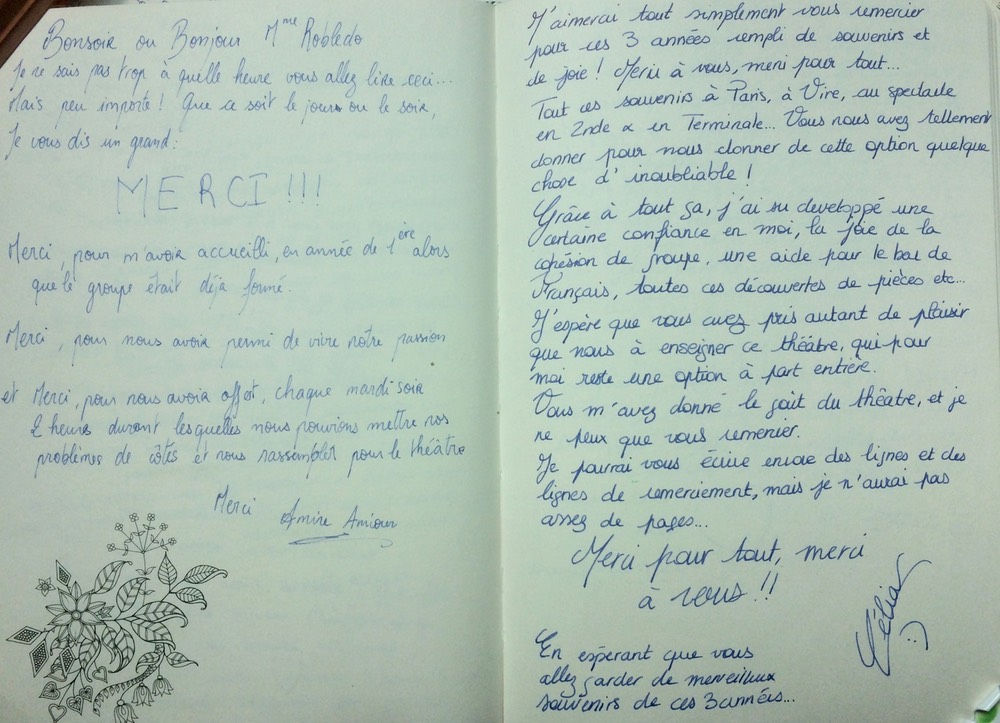 Bonsoir ou Bonjour Mme Robledo
Je ne sais pas trop à quelle heure vous allez lire ceci...
Mais peu importe ! Que ce soit le jour ou le soir,
Je vous dis un grand :
MERCI !!!
Merci, pour m'avoir accueilli, en année de 1ère alors
que le groupe était déjà formé.
Merci, pour nous avoir permi de vivre notre passion
et Merci, pour nous avoir offert, chaque mardi soir
2 heures durant lesquelles nous pouvions mettre nos
problèmes de côtés et nous rassembler pour le théâtre
Merci
Amire Amiour
J'aimerai tout simplement vous remercier
pour ces 3 années rempli de souvenirs et
de joie ! Merci à vous, merci pour tout...
Tout ces souvenirs à Paris, à Vire, au spectacle
en 2nde & en Terminale... Vous nous avez tellement
donner pour nous donner de cette option quelque
chose d'inoubliable !
Grâce à tout ça, j'ai su developpé une
certaine confiance en moi, la joie de la
cohésion de groupe, une aide pour le bac de
Français, toutes ces découvertes de pièces etc...
J'espère que vous avez pris autant de plaisir
que nous à enseigner ce théâtre, qui pour
moi reste une option à part entière.
Vous m'avez donné le goût du théâtre, et je
ne peux que vous remercier.
Je pourrai vous écrire encore des lignes et des
lignes de remerciement, mais je n'aurai pas
assez de pages...
Merci pour tout, merci
à vous !!
Célia
:)
En espérant que vous
allez garder de merveilleux
souvenirs de ces 3 années...